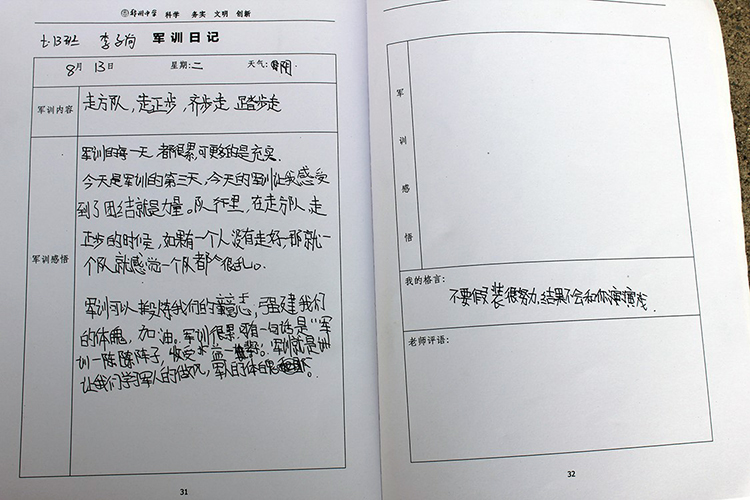 郑州中学 科学 务实 文明 创新
七13班 李 军训日记
8月13日 星期:二 天气:阴
军训内容
走方队,走正步,齐步走 踏步走
军训感悟
军训的每一天都很累,可更多的是充实.
今天是军训的第三天,今天的军训让我感受
到了团结就是力量。队伍里,在走方队、走
正步的时候,如果有一个人没有走好,那就一
个队就感觉一个队都很乱。
军训可以锻炼我们的意志,强建我们
的体魄,加油。军训很累,有一句话是“军
训一阵阵子,收受益一辈”。军训就是
让我们学习军人的做风,军人的体
31
军训感悟
我的格言:
不要假装很努力,结果不会和你演戏.
老师评语:
32